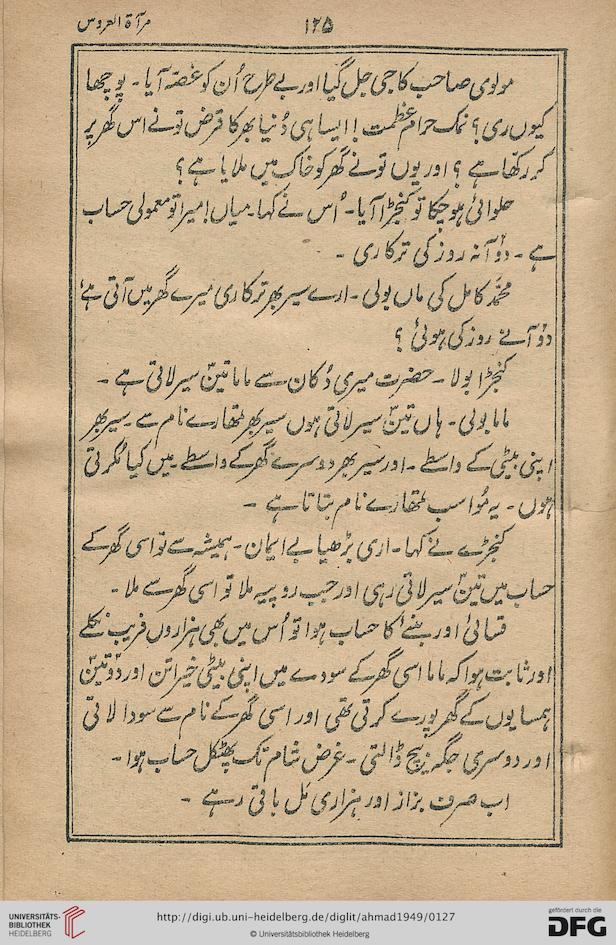 مرآة العروس
۱۲۵
مولوی صاحب کا جی جل گیا اور بے طرح اُن کو غصّہ آیا۔ پوچھا
کیوں ری؟ نمک حرام عظمت!! ایسا ہی دُنیا بھر کا قرض تو نے اس گھر پر
کر رکھّا ہے؟ اور یوں تو نے گھر کو خاک میں ملایا ہے؟
حلوائی ہو چکا تو کنجڑا آیا۔ اُس نے کہا۔ میاں! میرا تو معمولی حساب
ہے۔ دو آنہ روز کی ترکاری۔
محمّد کامل کی ماں بولی۔ ارے سیر بھر ترکاری میرے گھر میں آتی ہے
دو آنے روز کی ہوئی؟
کنجڑا بولا۔ حضرت میری دُکان سے ماما تین سیر لاتی ہے۔
ماما بولی۔ ہاں تین سیر لاتی ہوں سیر بھر تمھارے نام سے۔ سیر بھر
اپنی بیٹی کے واسطے۔ اور سیر بھر دوسرے گھر کے واسطے۔ میں کیا مُکرتی
ہوں۔ یہ مُوا سب تمھارے نام بتاتا ہے۔
کنجڑے نے کہا۔ اری بڑھیا بے ایمان۔ ہمیشہ سے تو اسی گھر کے
حساب میں تین سیر لاتی رہی اور جب روپیہ ملا تو اسی گھر سے ملا۔
قسائی اور بنئے کا حساب ہوا تو اُس میں بھی ہزاروں فریب نکلے
اور ثابت ہوا کہ ماما اسی گھر کے سودے میں اپنی بیٹی خیراتن اور دو تین
ہمسایوں کے گھر پورے کرتی تھی اور اسی گھر کے نام سے سودا لاتی
اور دوسری جگہ بیچ ڈالتی۔ غرض شام تک پھٹکل حساب ہوا۔
اب صرف بزاز اور ہزاری مل باقی رہے۔
UNIVERSITÄTS-
BIBLIOTHEK
HEIDELBERG
http://digi.ub.uni-heidelberg.de/diglit/ahmad1949/0127
© Universitätsbibliothek Heidelberg
gefördert durch die
DFG